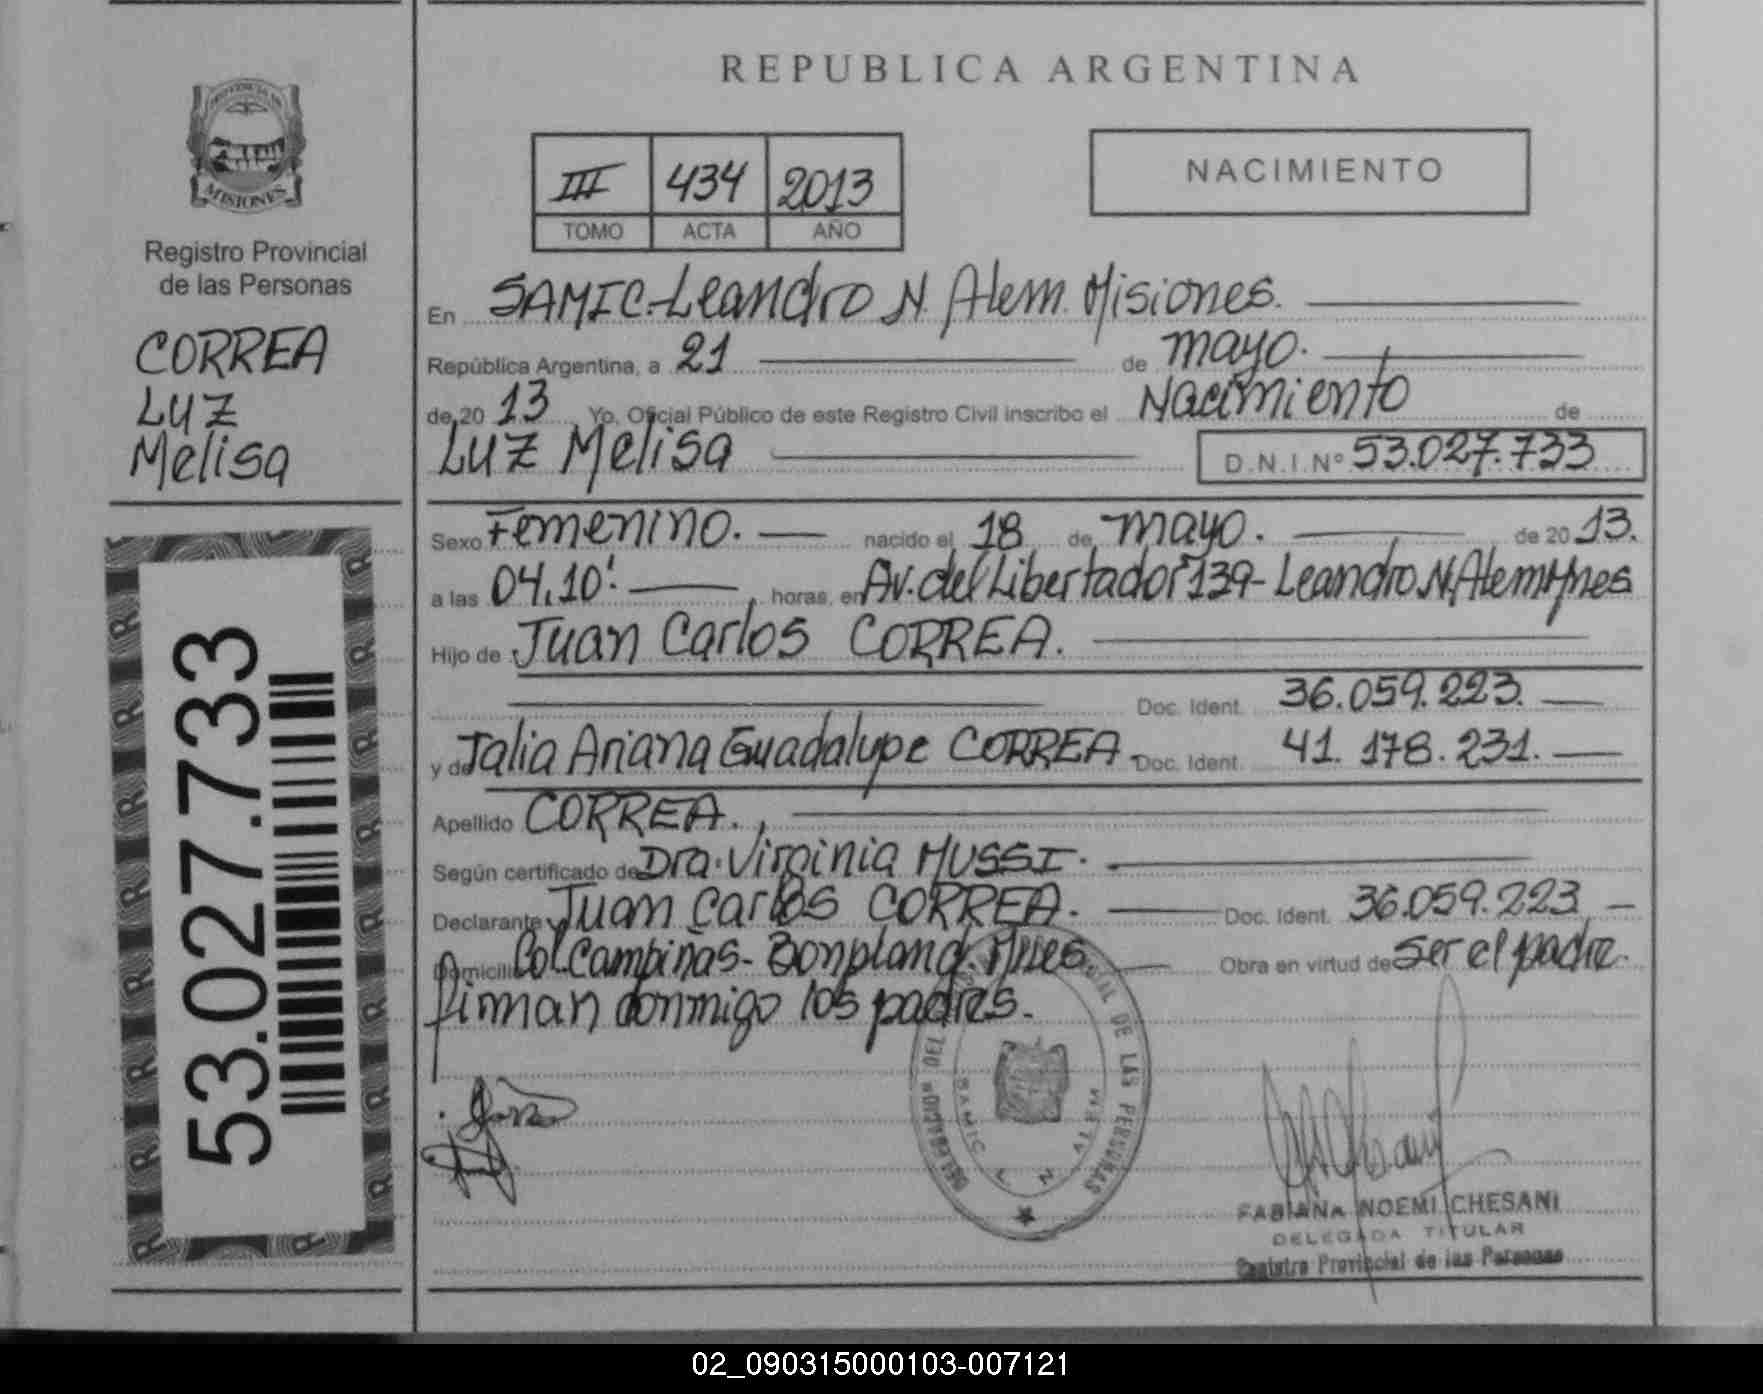 REPUBLICA ARGENTINA
PROVINCIA DE
MISIONES
Registro Provincial
de las Personas
CORREA
LUZ
Melisa
III 434 2013
TOMO ACTA AÑO
NACIMIENTO
En SAMIC-Leandro N. Alem. Misiones.
República Argentina, a 21 de mayo.
de 20 13 Yo, Oficial Público de este Registro Civil inscribo el Nacimiento de
LUZ Melisa D.N.I.Nº 53.027.733
Sexo Femenino. nacido el 18 de mayo. de 20 13.
a las 04.10' horas, en Av. del Libertador 139- Leandro N. Alem Mnes
Hijo de Juan Carlos CORREA.
Doc. Ident. 36.059.223.
y de Talia Ariana Guadalupe CORREA. Doc. Ident. 41.178.231.
Apellido CORREA.
Según certificado de Dra. Virginia MUSSI.
Declarante Juan Carlos CORREA. Doc. Ident. 36.059.223
Domicilio Col. Campiñas- Bonpland. Mnes. Obra en virtud de Ser el padre.
firman conmigo los padres.
53.027.733
R R R R R R R R
DEL CIVIL DE LAS PERSONAS
SAMIC L N ALEM
FABIANA NOEMI CHESANI
DELEGADA TITULAR
Registro Provincial de las Personas
02_090315000103-007121